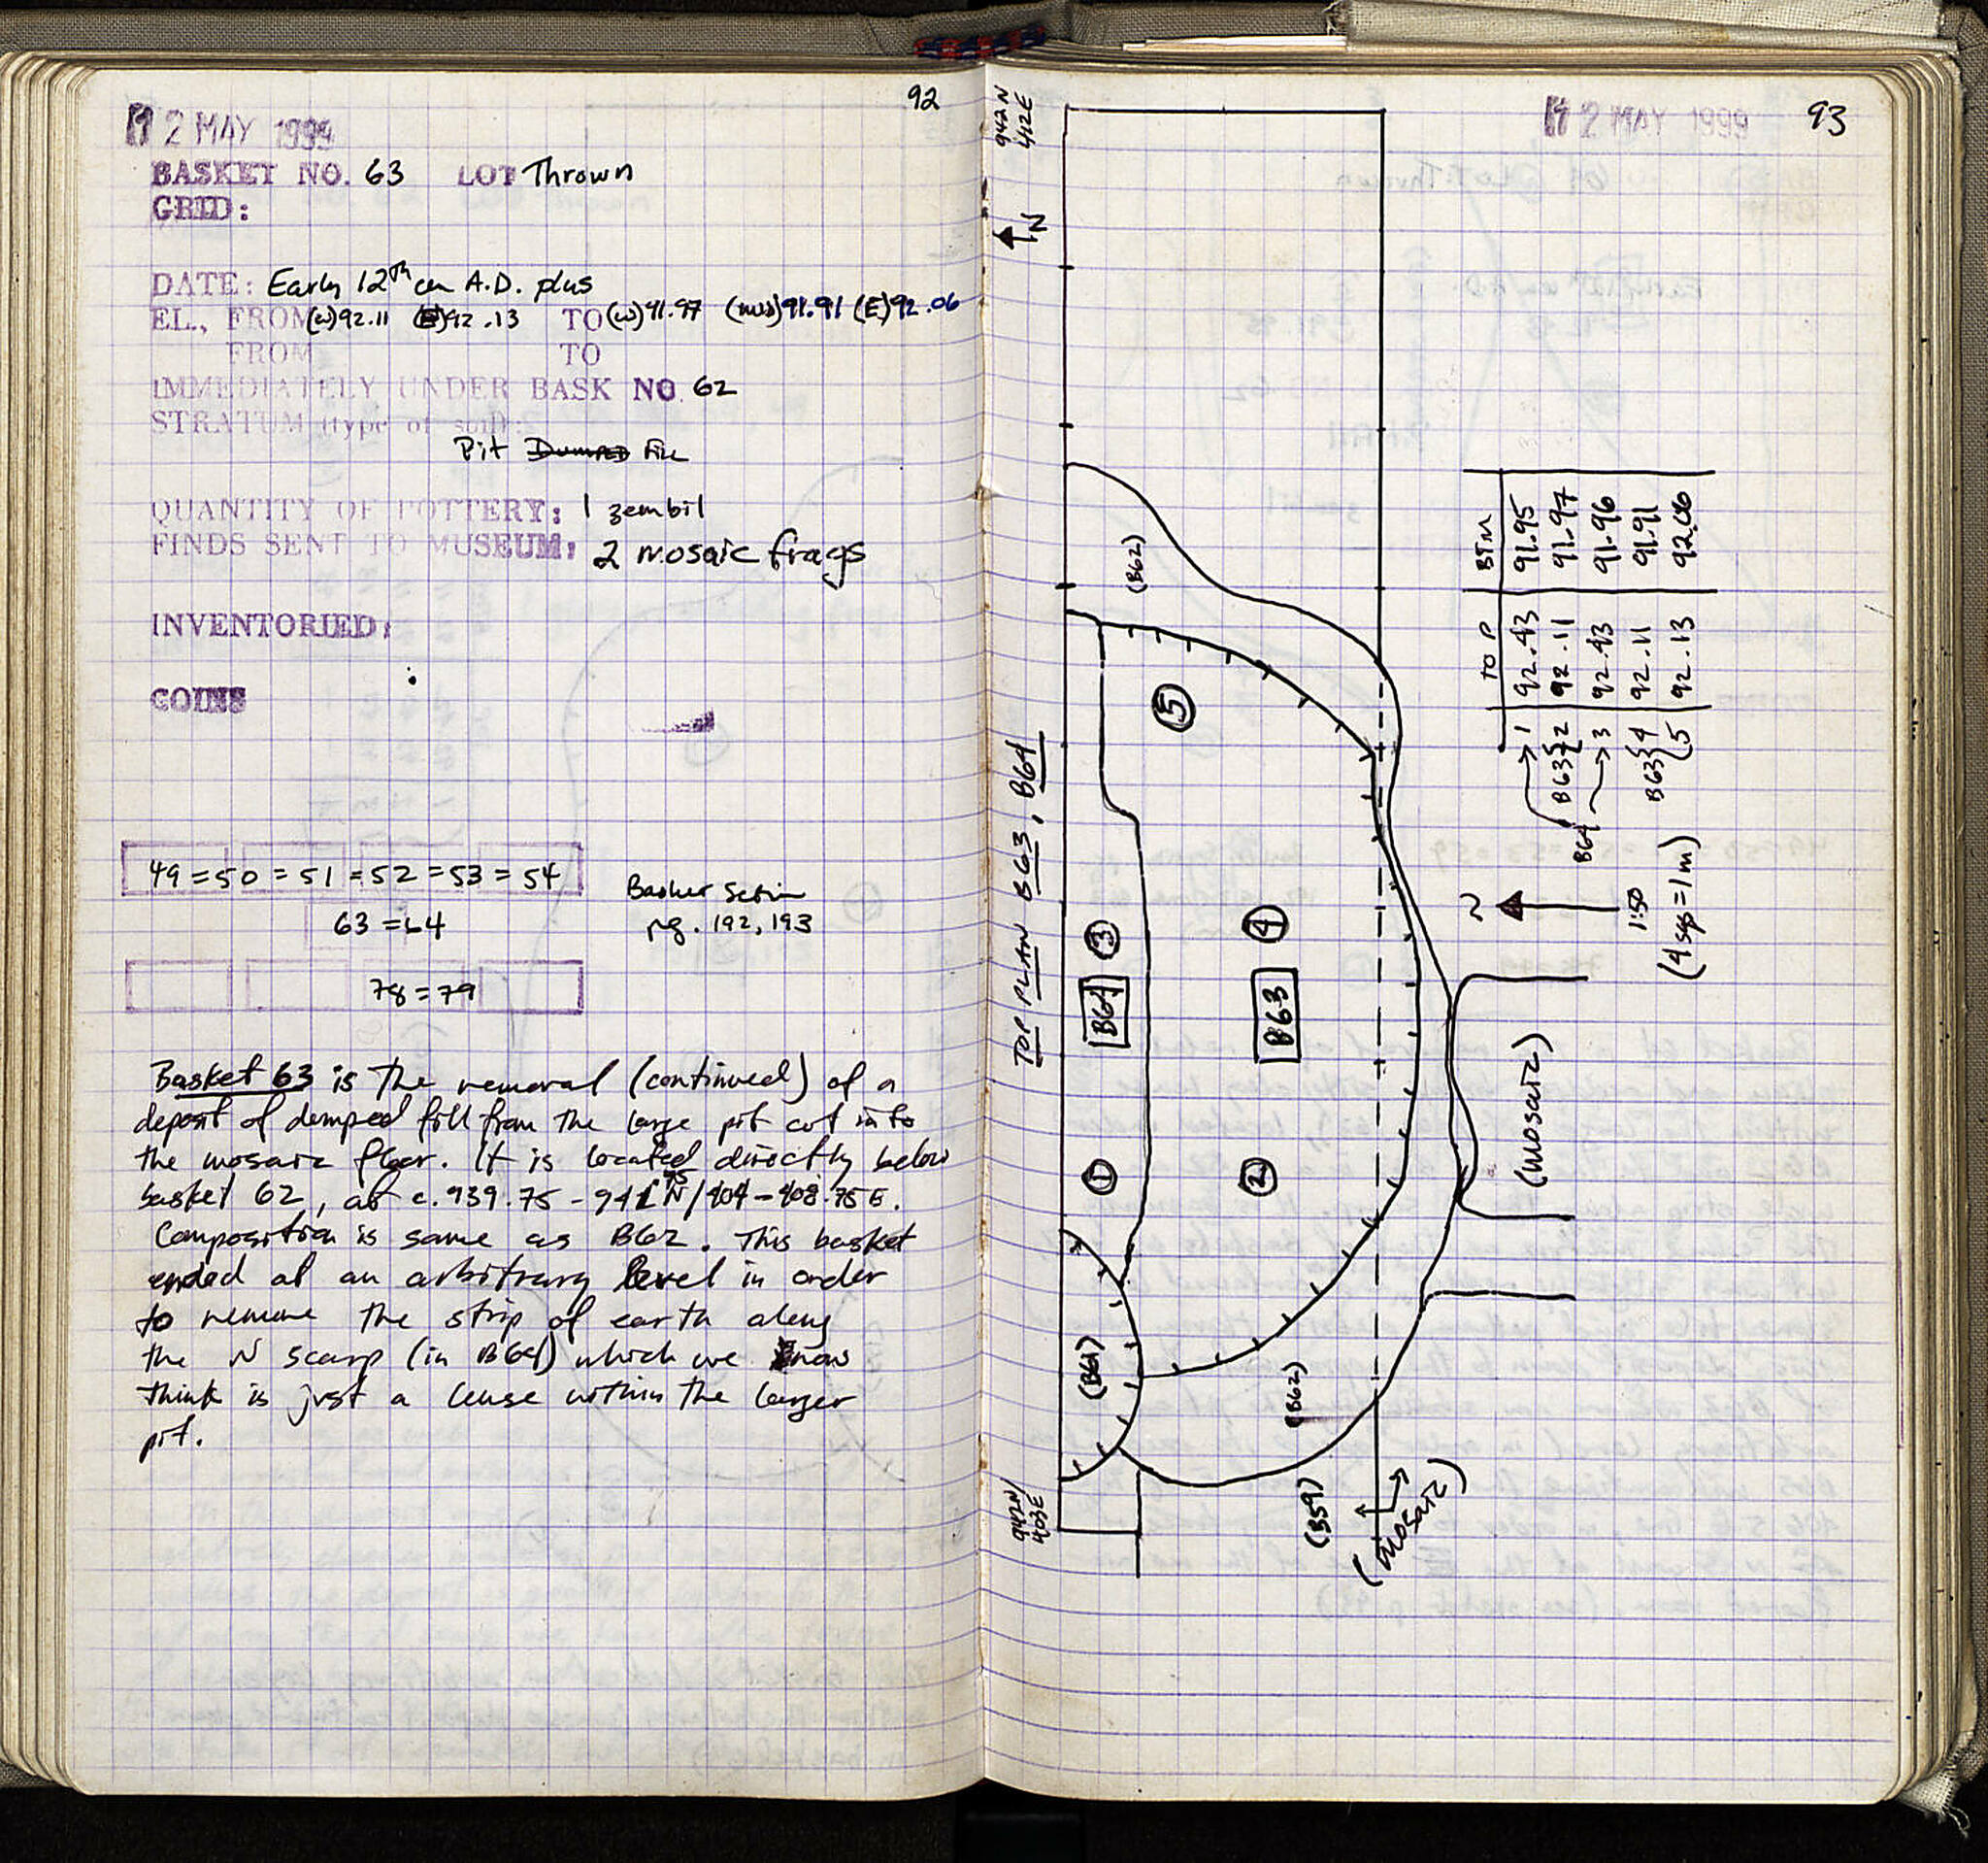 92
12 MAY 1999
BASKET NO. 63 LOT Thrown
GRID:
DATE: Early 12th cen A.D. plus
EL., FROM (W) 92.11 (E) 92.13 TO (W) 91.97 (mid) 91.91 (E) 92.06
FROM TO
IMMEDIATELY UNDER BASK NO. 62
STRATUM (type of soil):
Pit Dumped Fill
QUANTITY OF POTTERY: 1 zembil
FINDS SENT TO MUSEUM: 2 mosaic frags
INVENTORIED:
COINS
49 = 50 = 51 = 52 = 53 = 54
63 = 64
78 = 79
pg. 192, 193
Basket 63 is the removal (continued) of a
deposit of dumped fill from the large pit cut into
the mosaic floor. It is located directly below
basket 62, at c. 939.75 - 941.95 N / 404 - 408.75 E.
Composition is same as B62. This basket
ended at an arbitrary level in order
to remove the strip of earth along
the N scarp (in B64) which we now
think is just a lense within the larger
pit.
12 MAY 1999
93
942N
412E
N
TOP PLAN B63, B64
942N/
403E
(B62)
5
3
B64
4
B63
1
2
(B61)
(B62)
(B59)
(mosaic)
(mosaic)
TOP BTM
B64 1 92.43 91.95
B63 2 92.11 91.97
3 92.43 91.96
B63 4 92.11 91.91
5 92.13 92.06
1:50
(4 sqs = 1m)